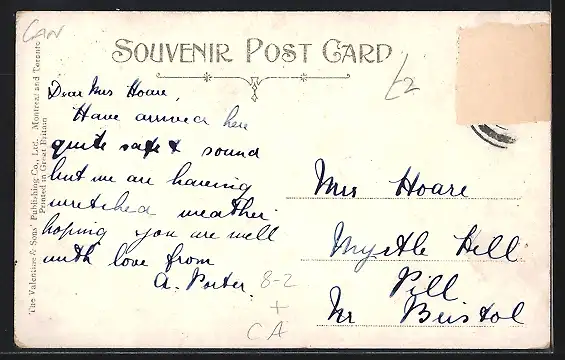 CAN
SOUVENIR POST CARD
£2
The Valentine & Sons' Publishing Co., Ltd. Montreal and Toronto
Printed in Great Britain
Dear Mrs Hoare,
Have arrived here
quite safe & sound
but we are having
wretched weather
hoping you are well
with love from
A. Porter.
8-2
+
CA
Mrs Hoare
Myrtle Hill
Pill
Nr Bristol